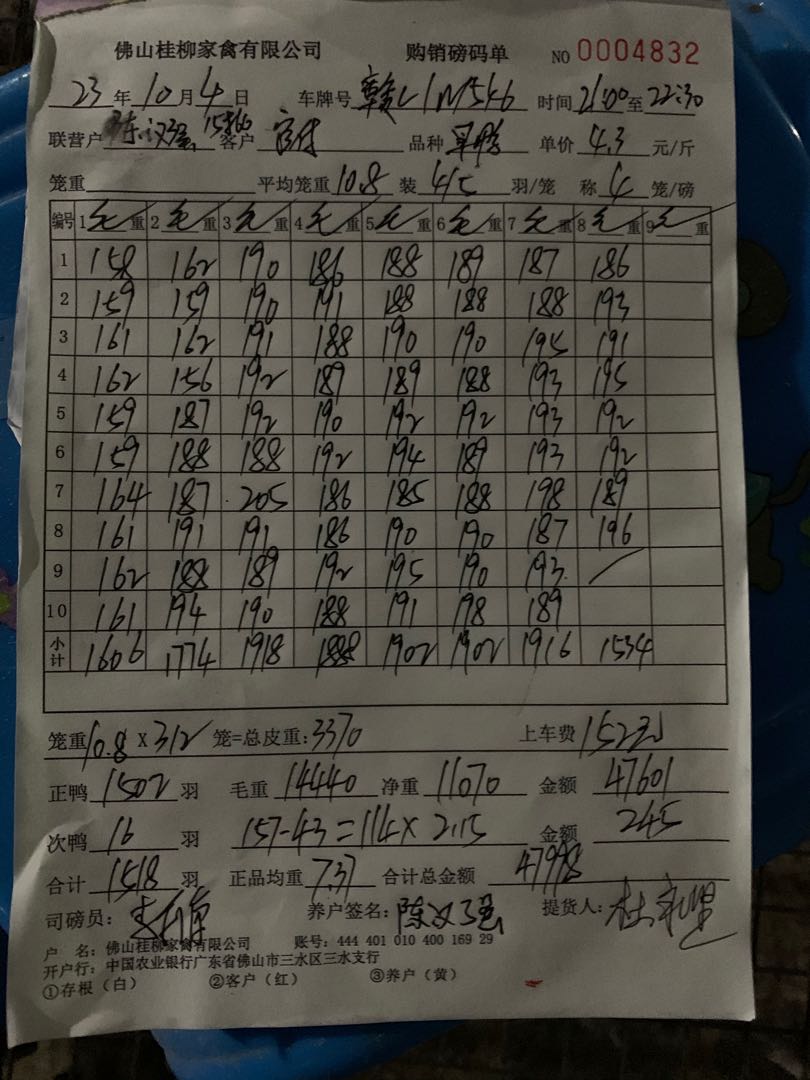 佛山桂柳家禽有限公司 购销磅码单 NO 0004832
23年10月4日 车牌号 赣L1M546 时间21:00至22:30
联营户 陈汉强 客户 品种 单价 4.3 元/斤
笼重 平均笼重10.8 装 4/5 羽/笼 称 4 笼/磅
编号 1毛重 2毛重 3毛重 4毛重 5毛重 6毛重 7毛重 8毛重 9毛重
1 158 162 190 186 188 189 187 186
2 159 159 190 191 188 188 188 193
3 161 162 191 188 190 190 195 191
4 162 156 192 189 189 188 193 195
5 159 187 192 190 192 192 193 192
6 159 188 188 192 194 189 193 192
7 164 187 205 186 185 188 198 189
8 161 191 191 186 190 190 187 196
9 162 188 189 192 195 190 193 /
10 161 194 190 188 191 198 189
小计 1606 1774 1918 1888 1902 1902 1916 1534
笼重 10.8 X 312 笼=总皮重:3370 上车费 152元
正鸭 1502 羽 毛重 14440 净重 11070 金额 47601
次鸭 16 羽 157-43=114×2.15 金额 245
合计 1518 羽 正品均重 7.37 合计总金额 47998
司磅员: 养户签名: 陈汉强 提货人:
户 名: 佛山桂柳家禽有限公司 账号: 444 401 010 400 169 29
开户行: 中国农业银行广东省佛山市三水区三水支行
①存根(白) ②客户(红) ③养户(黄)